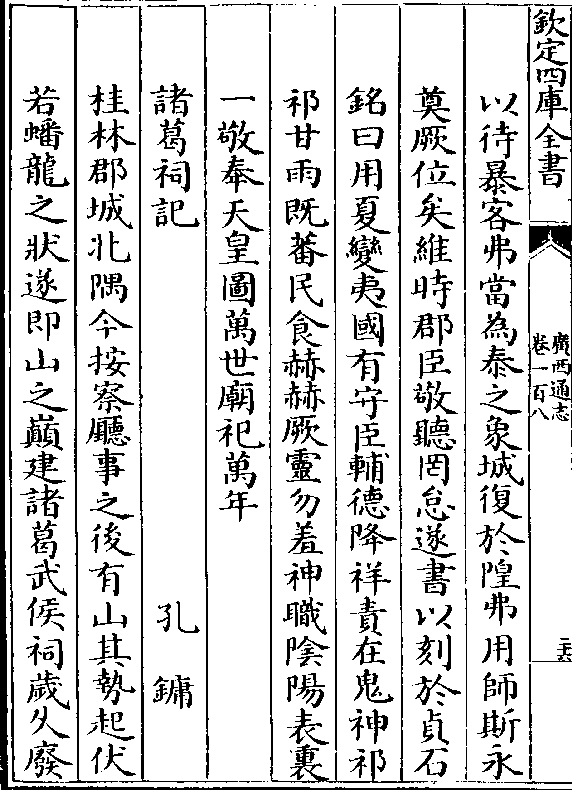 欽定四庫全書
廣西通志
卷一百八
二六
以待暴客弗當為泰之象城復於隍弗用師斯永
奠厥位矣維時郡臣敬聽罔怠遂書以刻於貞石
銘曰用夏變夷國有守臣輔德降祥責在鬼神祁
祁甘雨既蕃民食赫赫厥靈勿羞神職陰陽表裏
一敬奉天皇圖萬世廟祀萬年
諸葛祠記 孔鏞
桂林郡城北隅今按察廳事之後有山其勢起伏
若蟠龍之狀遂即山之巔建諸葛武侯祠歲久廢